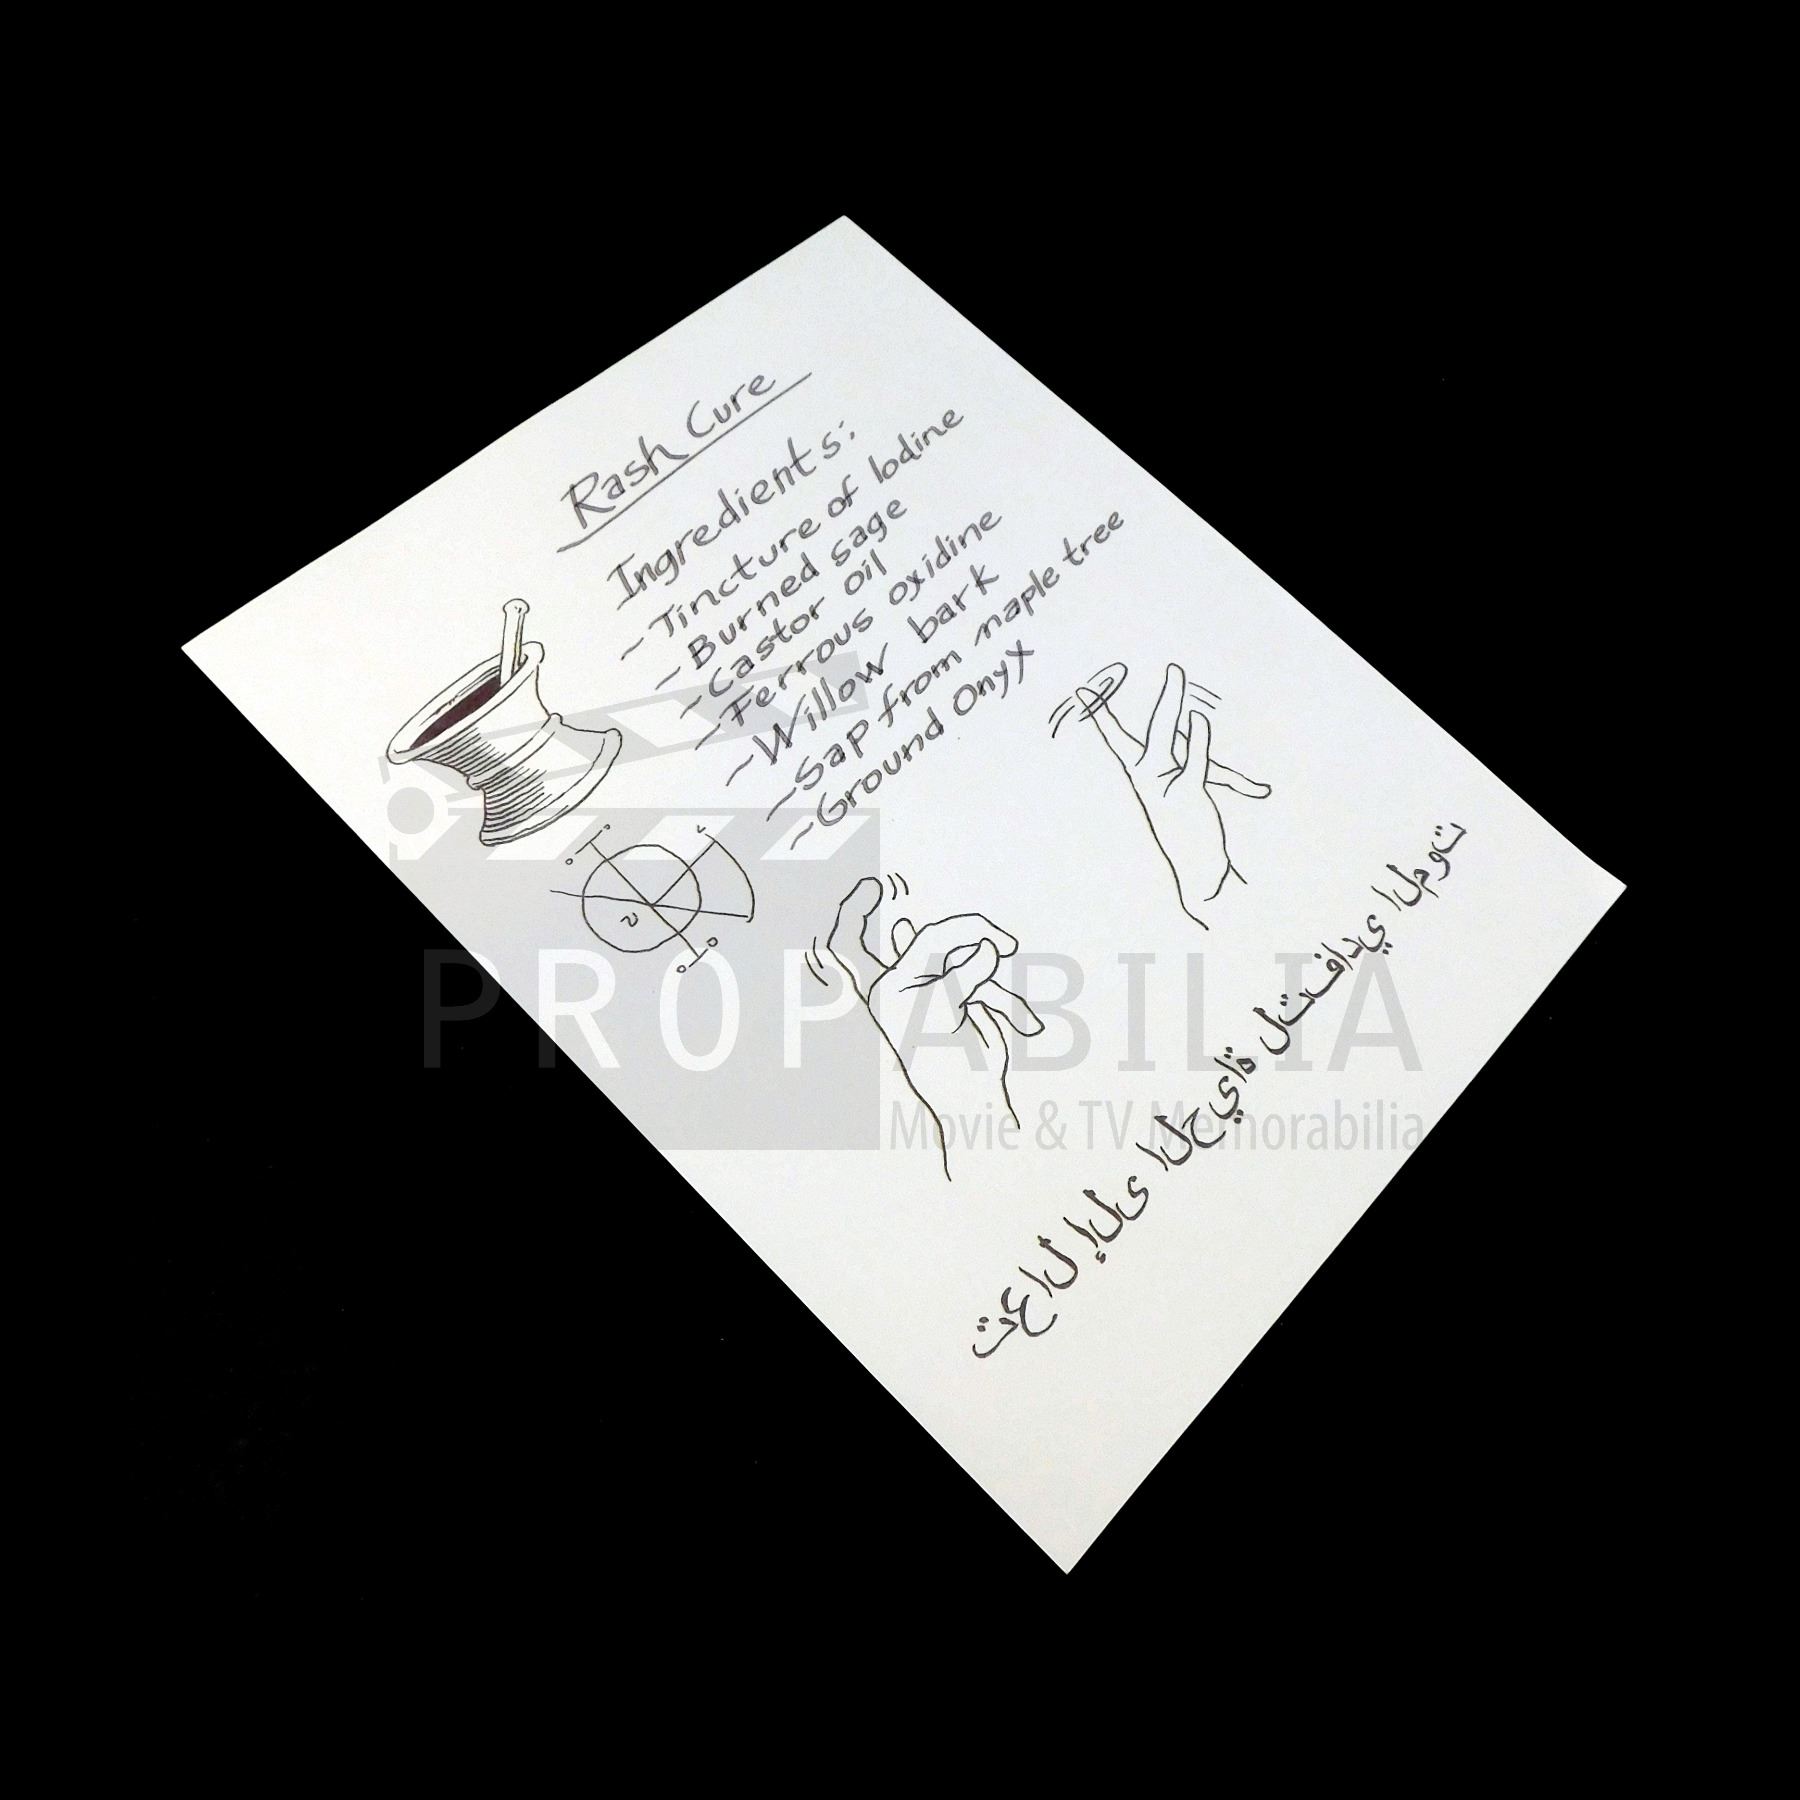 Rash Cure
Ingredients:
~Tincture of Iodine
~Burned sage
~Castor oil
~Ferrous oxidine
~Willow bark
~Sap from maple tree
~Ground Onyx
تعال إلى الحياة لتفادي الموت
PROPABILIA
Movie & TV Memorabilia